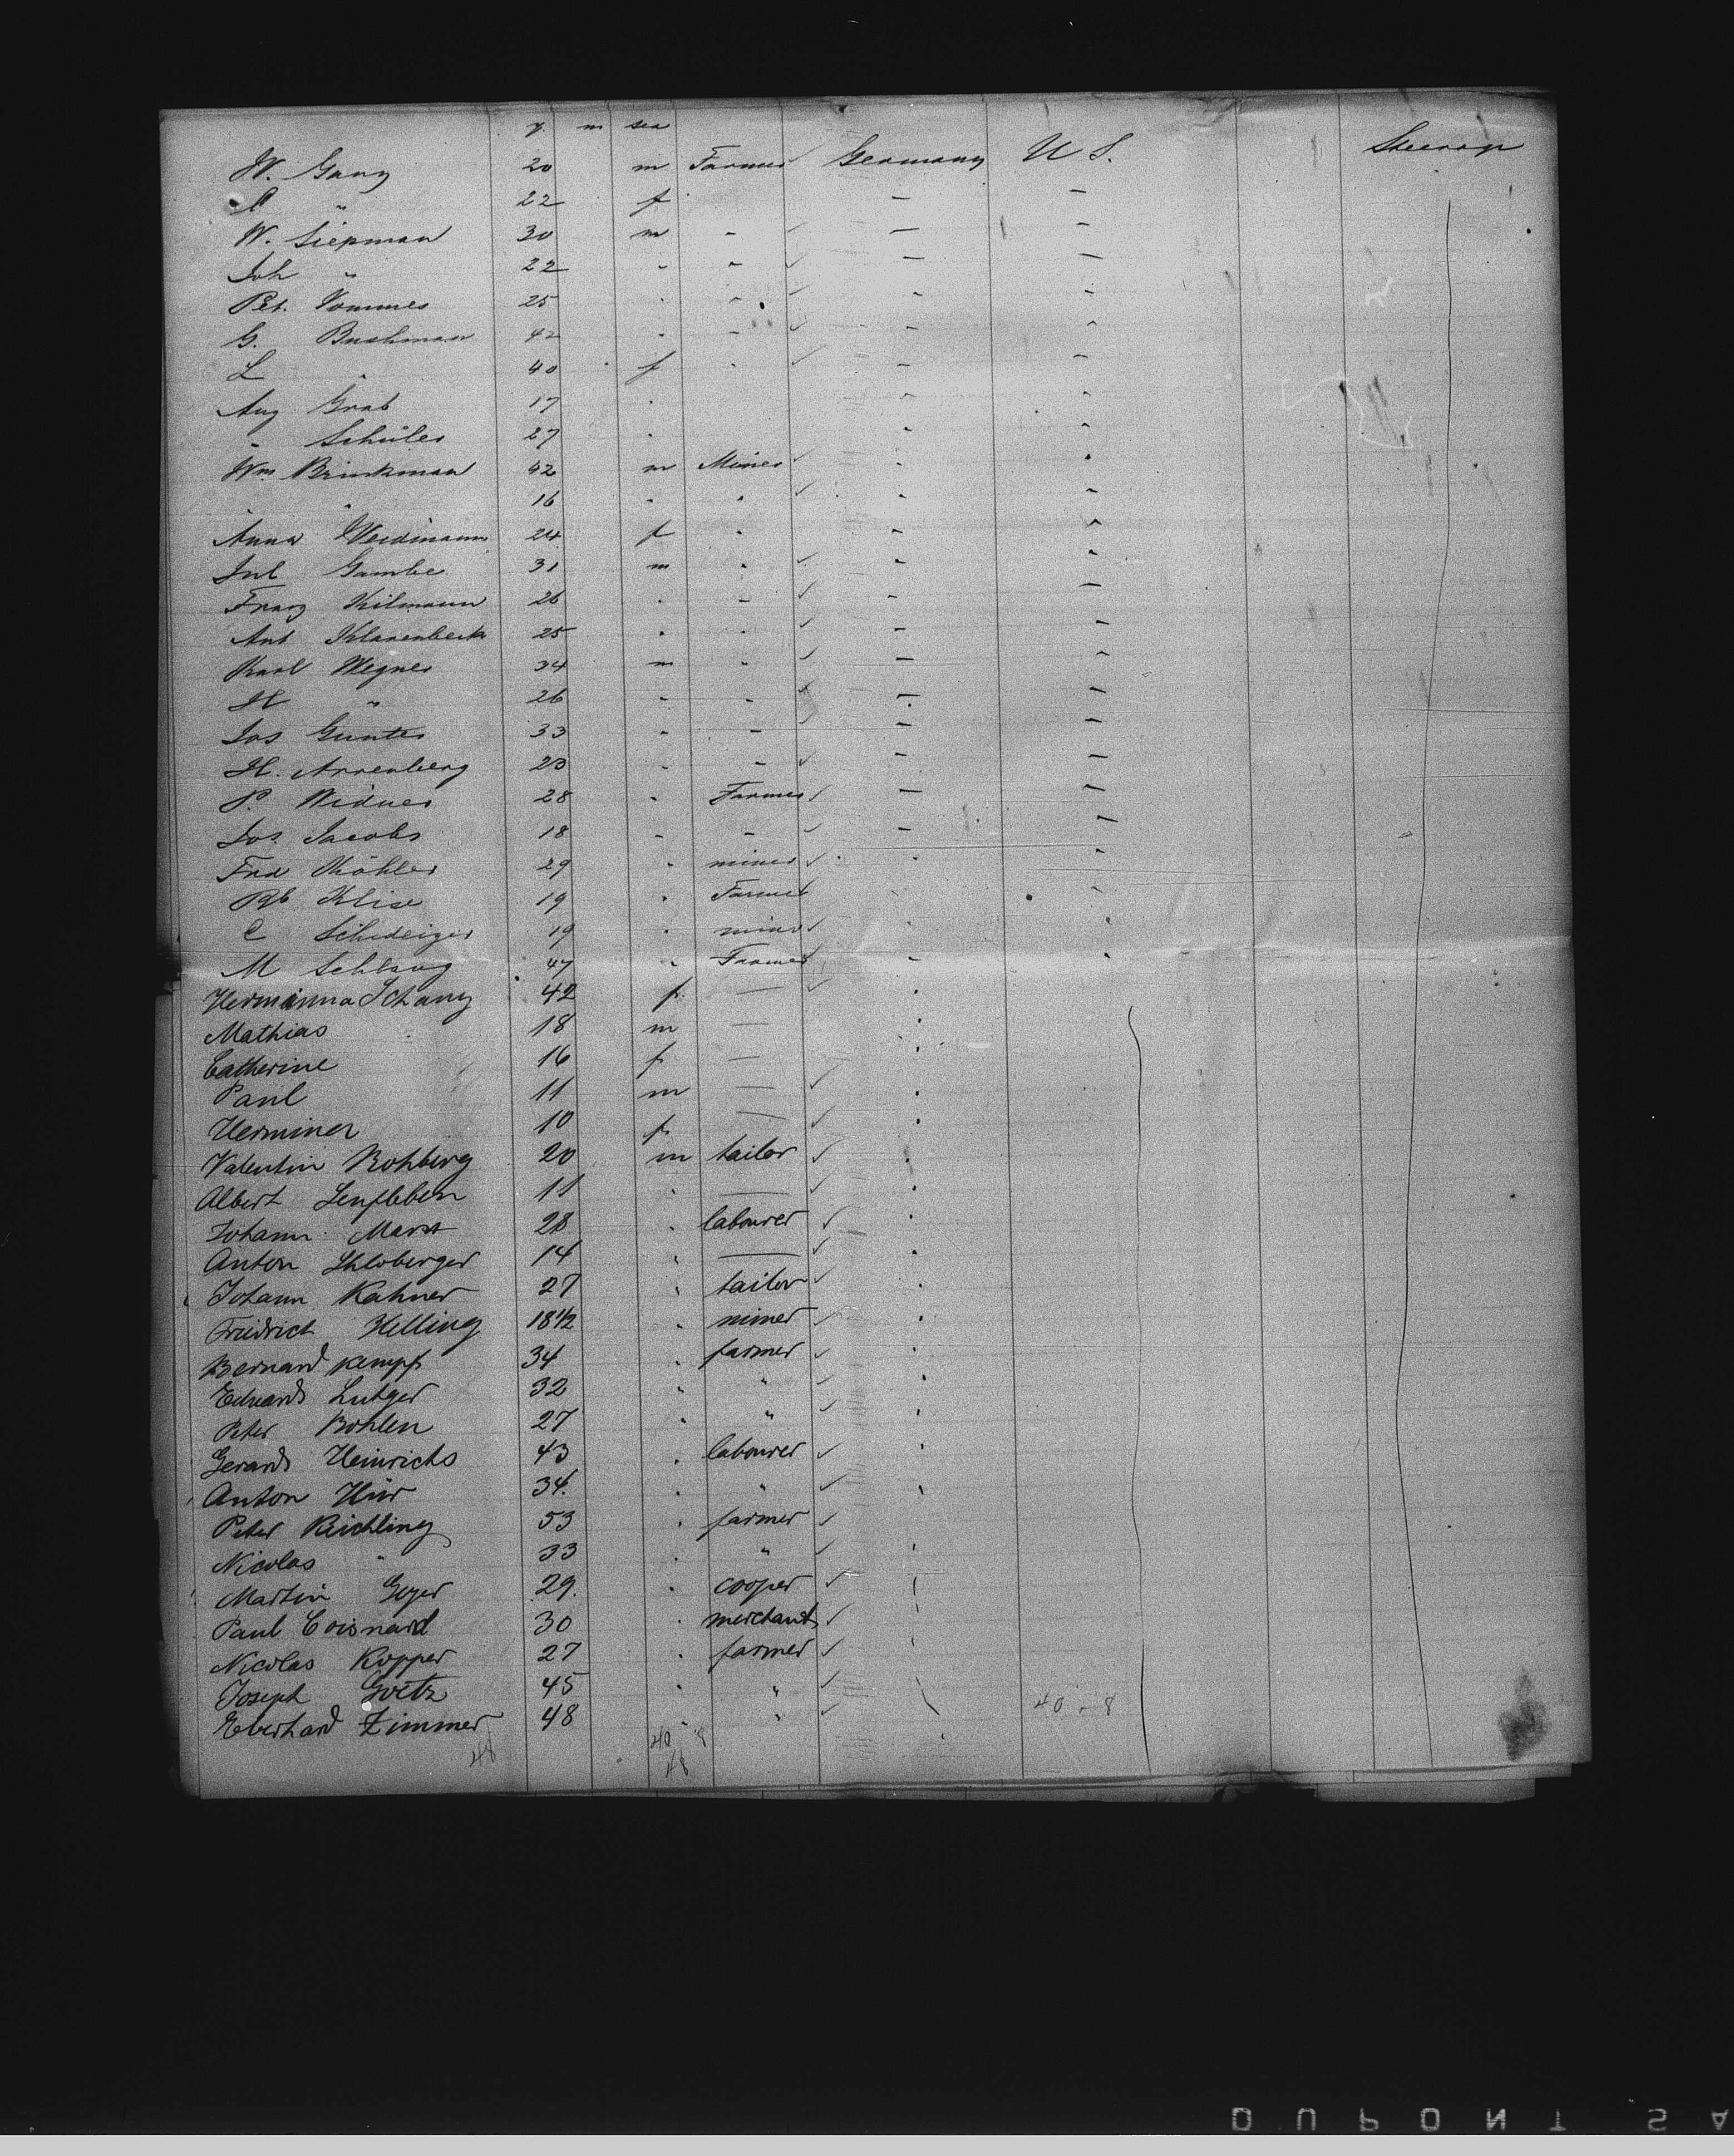 y. m sex
W. Gang 20 m Farmer Germany U S. Steerage
C " 22 f - -
W. Siepman 30 m - - -
Joh " 22 " - - -
Pet. Pommes 25 " " - -
G. Bushman 42 " - - -
L " 40 f " - -
Aug Grab 17 " - -
" Schüler 27 " " "
Wm Brinkman 42 m Miner " "
" " 16 " " " "
Anna Weidmann 24 f " - "
Jul Gambe 31 m " " "
Franz Kilmann 26 " - - -
Ant Klarenbeck 25 " " - -
Karl Wegner 34 m " - -
H " 26 " " - -
Jos Günter 33 " - - -
H. Arrenberg 20 " - - -
P. Widner 28 " Farmer - -
Jos. Jacobs 18 - - - -
Frd Köhler 29 " miner " "
Rb Klise 19 " Farmer " "
C 19 " miner " "
M 47 " Farmer " "
Hermanna Schang 42 f. — "
Mathias 18 m — "
Catherine 16 f — "
Paul 11 m — "
Hermine 10 f — "
Valentin Rohberg 20 m tailor "
Albert Senfleben 11 " — "
Johann Marx 28 " labourer "
Anton 14 " — "
Johann Kahner 27 " tailor "
Friedrich Helling 18 1/2 " miner "
Bernard Kempf 34 " farmer "
Eduard Lutger 32 " " "
Peter Bohlen 27 " " "
Gerard Heinrichs 43 " labourer "
Anton Hür 34. " " "
Peter Reichling 53 " farmer "
Nicolas " 33 " " "
Martin Geyer 29. " cooper "
Paul Coisnard 30 " merchant "
Nicolas Kopper 27 " farmer "
Joseph Goetz 45 " " "
Eberhard Zimmer 48 " " " 40 - 8
48 40 8
48
DUPONT SA